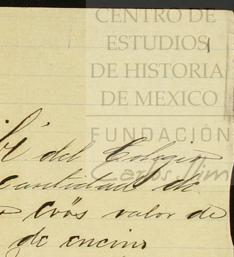 CENTRO DE
ESTUDIOS
DE HISTORIA
DE MEXICO
FUNDACIÓN
Carlos Slim
del Colegio
cantidad de
valor de
de encino